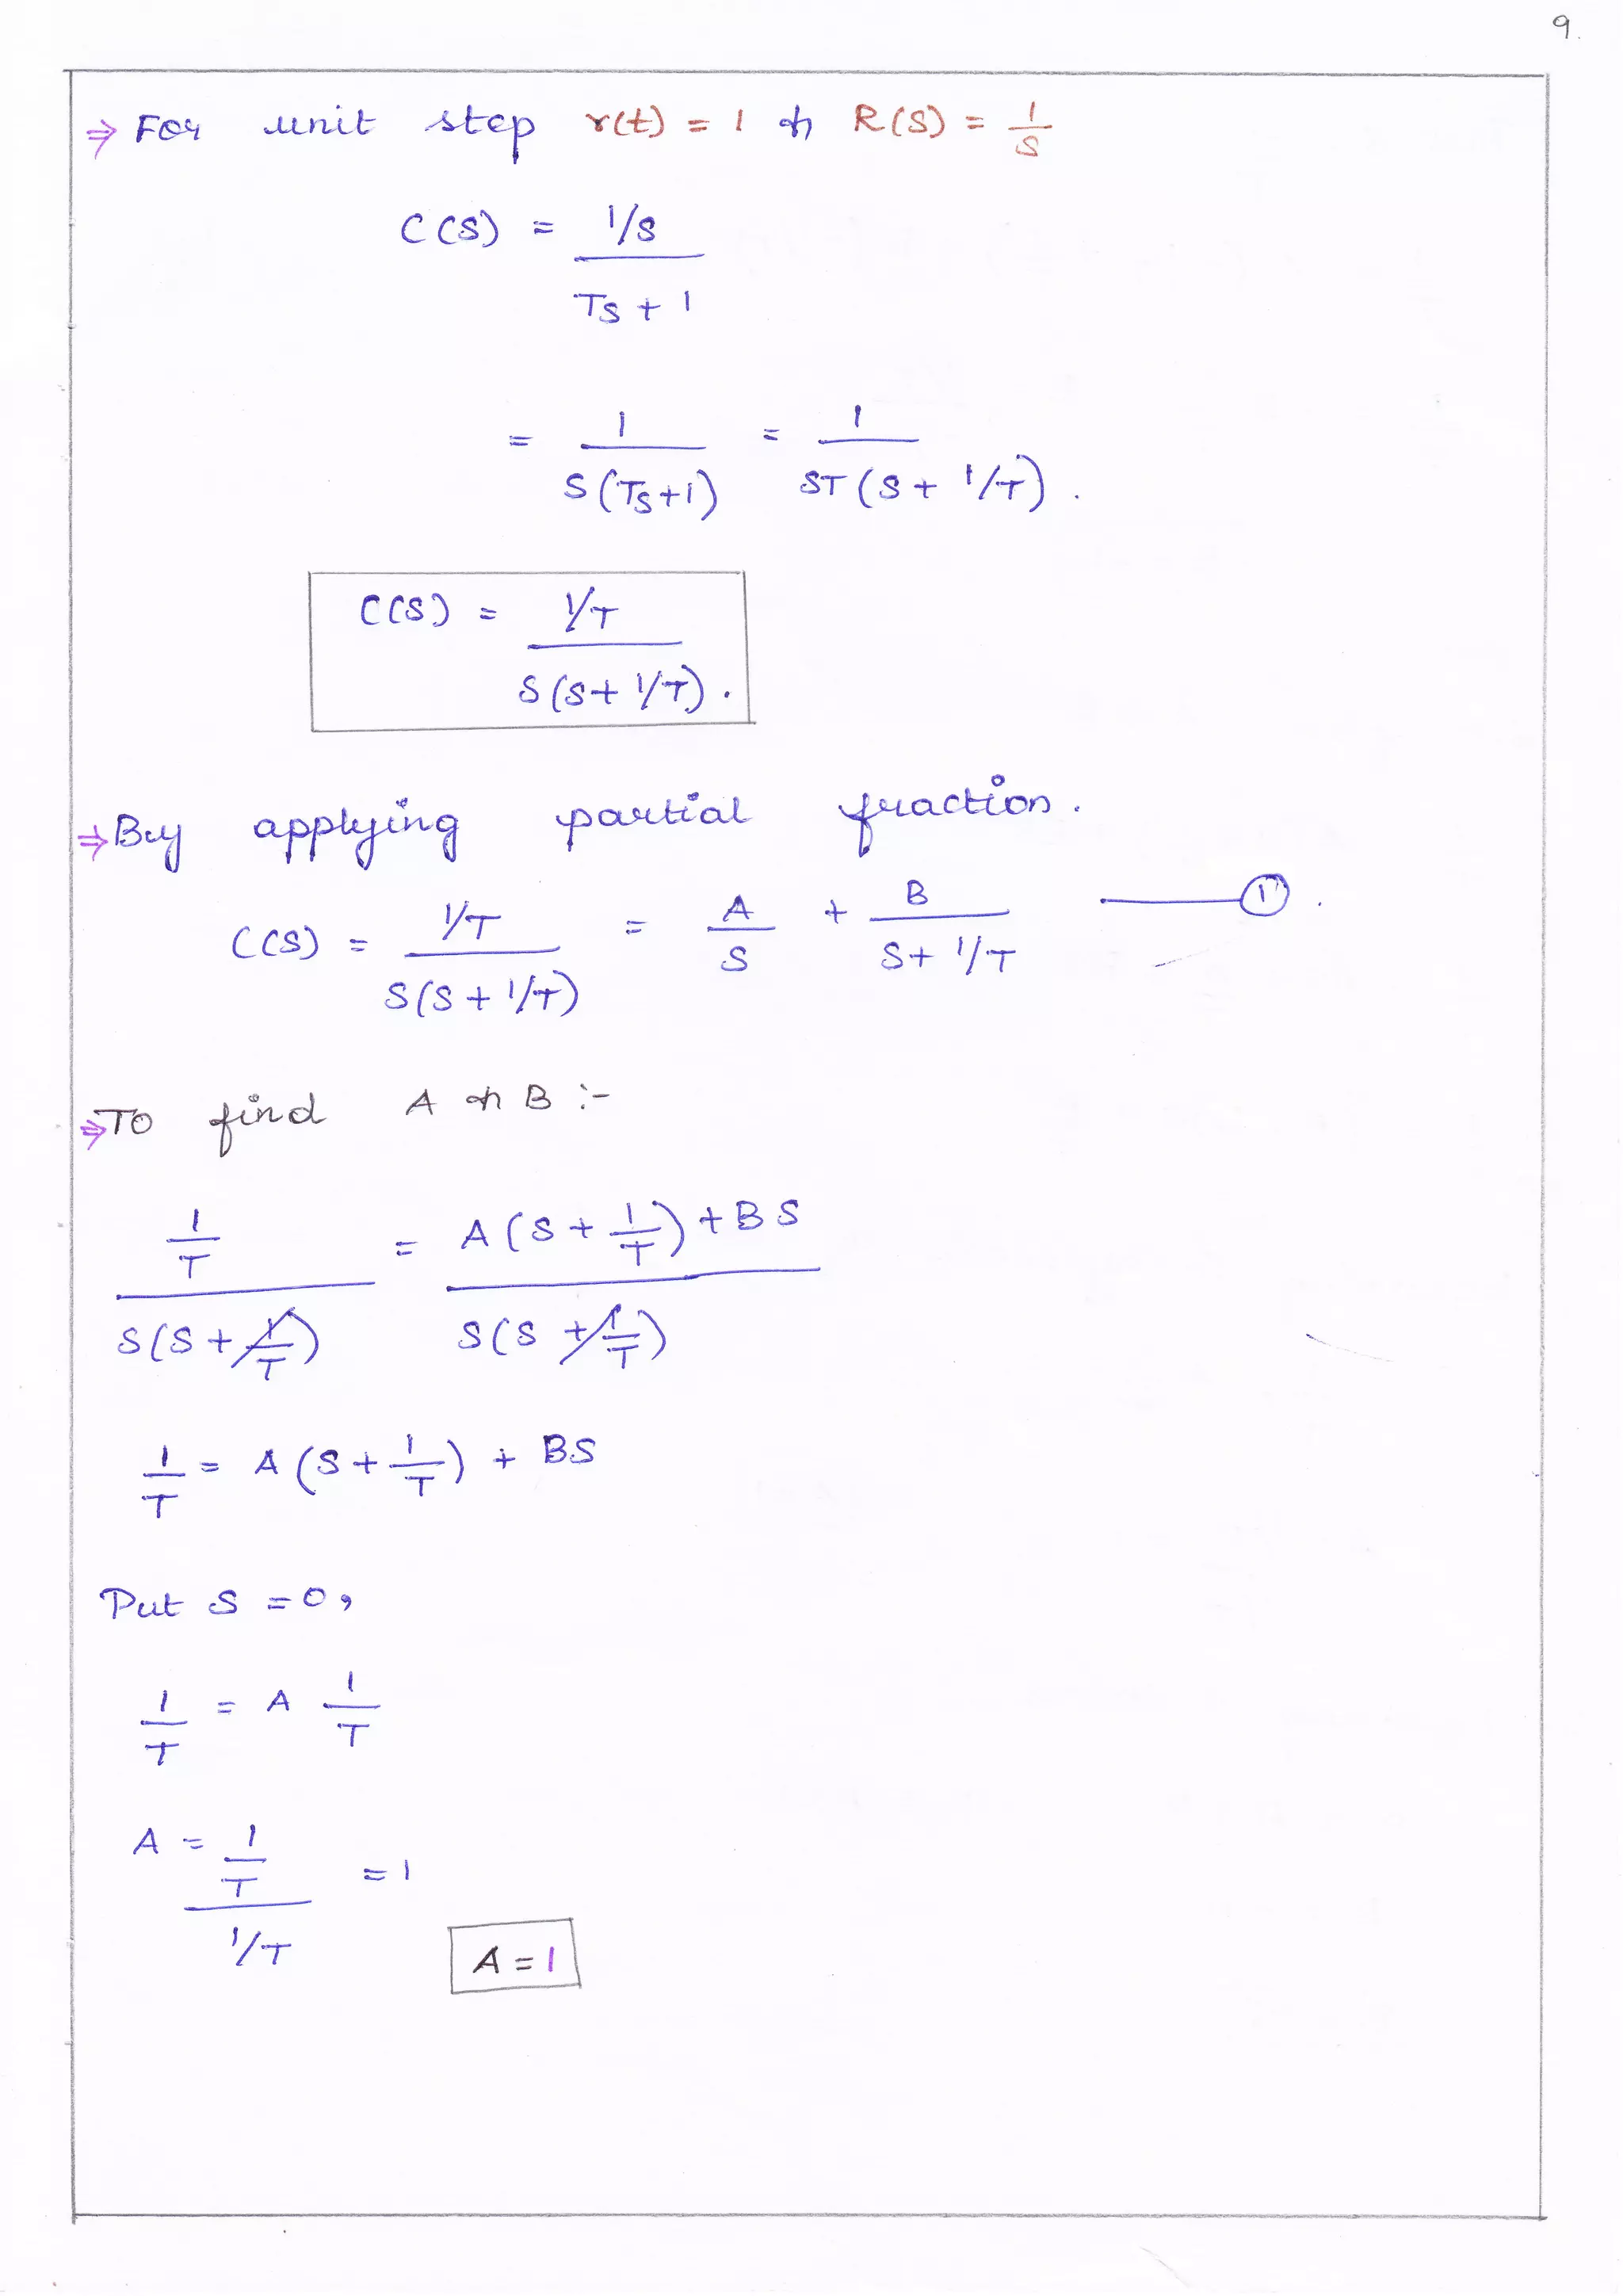 9.
⇒ For unit step r(t) = 1 & R(S) = 1/S
C(S) = (1/S) / (TS + 1)
= 1 / (S(TS+1)) = 1 / (ST(S + 1/T)).
C(S) = (1/T) / (S(S + 1/T)).
⇒ By applying partial fraction.
C(S) = (1/T) / (S(S + 1/T)) = A/S + B/(S + 1/T) —— ①.
⇒ To find A & B :-
(1/T) / (S(S + 1/T)) = (A(S + 1/T) + BS) / (S(S + 1/T))
1/T = A(S + 1/T) + BS
Put S = 0,
1/T = A 1/T
A = (1/T) / (1/T) = 1
A = 1